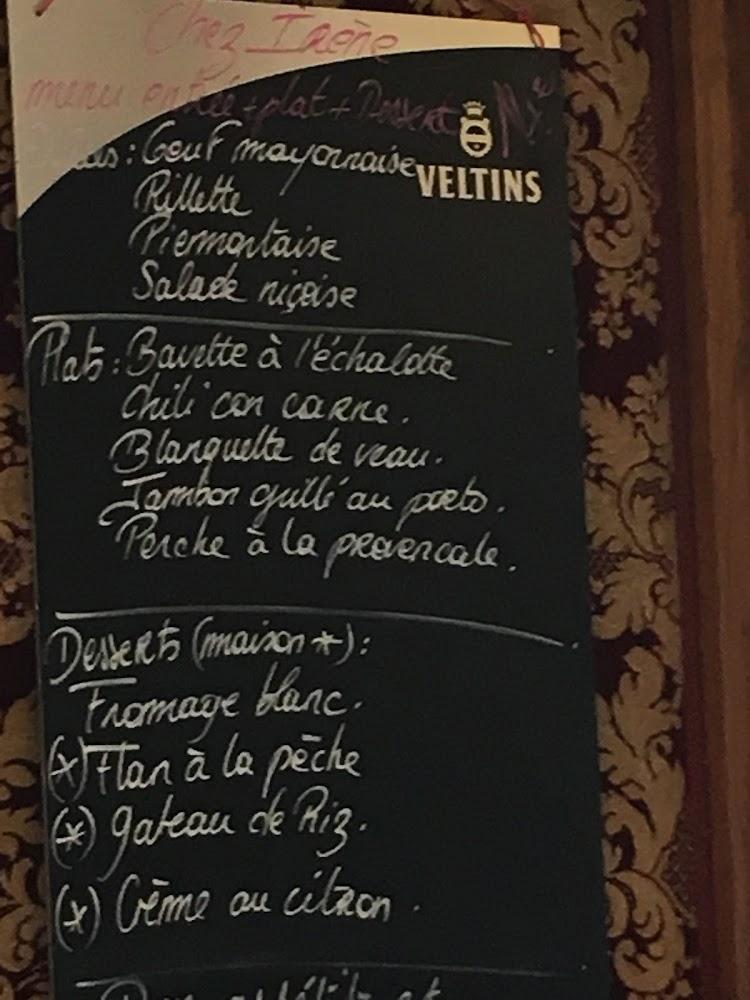 Chez Irène
menu entrée + plat + Dessert
VELTINS
: Oeuf mayonnaise
Rillette
Piemontaise
Salade niçoise
Plats : Bavette à l'échalotte
Chili con carne.
Blanquette de veau.
Jambon grillé au porto.
Perche à la provencale.
Desserts (maison *) :
Fromage blanc.
(*) Flan à la pêche
(*) gateau de Riz.
(*) Crème au citron.